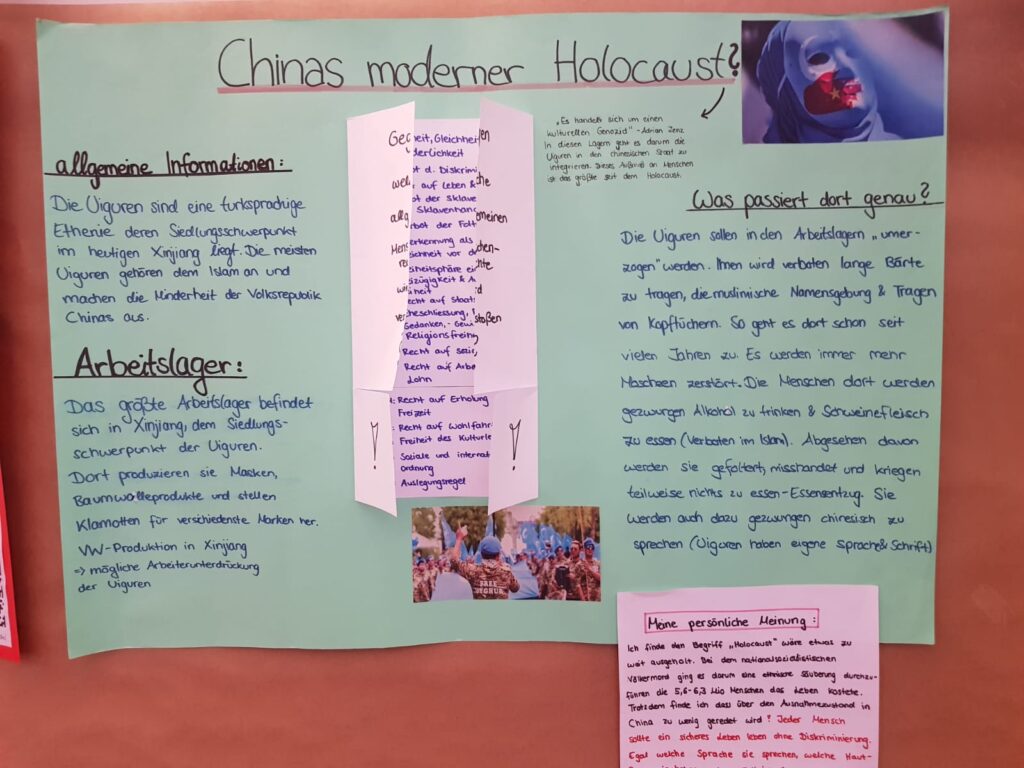 Chinas moderner Holocaust?
„Es handelt sich um einen
kulturellen Genozid" - Adrian Zenz
In diesen Lagern geht es darum die
Uiguren in den chinesischen Staat zu
integrieren. Dieses Außmaß an Menschen
ist das größte seit dem Holocaust.
allgemeine Informationen:
Die Uiguren sind eine turksprachige
Ethenie deren Siedlungsschwerpunkt
im heutigen Xinjiang liegt. Die meisten
Uiguren gehören dem Islam an und
machen die Minderheit der Volksrepublik
Chinas aus.
Arbeitslager:
Das größte Arbeitslager befindet
sich in Xinjiang, dem Siedlungs-
schwerpunkt der Uiguren.
Dort produzieren sie Masken,
Baumwolleprodukte und stellen
Klamotten für verschiedenste Marken her.
VW-Produktion in Xinjiang
=> mögliche Arbeiterunterdrückung
der Uiguren
heit, Gleichheit
derlichkeit
t d. Diskrimi
auf Leben &
ot der Sklave
Sklavenhan
rbot der Folt
erkennung als
Recht auf Staat
Gedanken,- Gew
Religionsfreih
Recht auf Sozi
Recht auf Arbe
Lohn
Recht auf Erholung
Freizeit
Recht auf Wohlfahr
Freiheit des Kulturle
Soziale und internat
ordnung
Auslegungsregel
!
!
FREE
UYGHUR
Was passiert dort genau?
Die Uiguren sollen in den Arbeitslagern „umer-
zogen" werden. Ihnen wird verboten lange Bärte
zu tragen, die muslimische Namensgebung & Tragen
von Kopftüchern. So geht es dort schon seit
vielen Jahren zu. Es werden immer mehr
Moscheen zerstört. Die Menschen dort werden
gezwungen Alkohol zu trinken & Schweinefleisch
zu essen (Verboten im Islam). Abgesehen davon
werden sie gefoltert, misshandet und kriegen
teilweise nichts zu essen-Essensentzug. Sie
werden auch dazu gezwungen chinesisch zu
sprechen (Uiguren haben eigene Sprache & Schrift)
Meine persönliche Meinung:
Ich finde den Begriff „Holocaust" wäre etwas zu
weit ausgeholt. Bei dem nationalsozialistischen
Völkermord ging es darum eine ethnische Säuberung durchzu-
führen die 5,6-6,3 Mio Menschen das Leben kostete.
Trotzdem finde ich dass über den Ausnahmezustand in
China zu wenig geredet wird! Jeder Mensch
sollte ein sicheres Leben leben ohne Diskriminierung.
Egal welche Sprache sie sprechen, welche Haut-